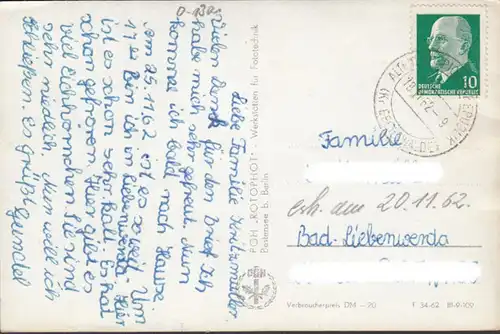 0-132
Liebe Familie
Vielen Dank für den Brief. Ich
habe mich sehr gefreut. Nun
komme ich bald nach Hause
am 25.11.62 ist es so weit. Um
17 bin ich in Liebenwerda. Hier
ist es schon sehr kalt. Es hat
schon gefroren. Hier gibt es
viel Eichhörnchen. Sie sind
sehr niedlich. Nun will ich
schließen. es grüßt
PGH „ROTOPHOT" · Werkstätten für Fototechnik
Bestensee b. Berlin
DEUTSCHE
DEMOKRATISCHE REPUBLIK
10
Familie
erh. am 20.11.62.
Bad-Liebenwerda
PGH
Verbraucherpreis DM -.20
F 34-62 III-9-109